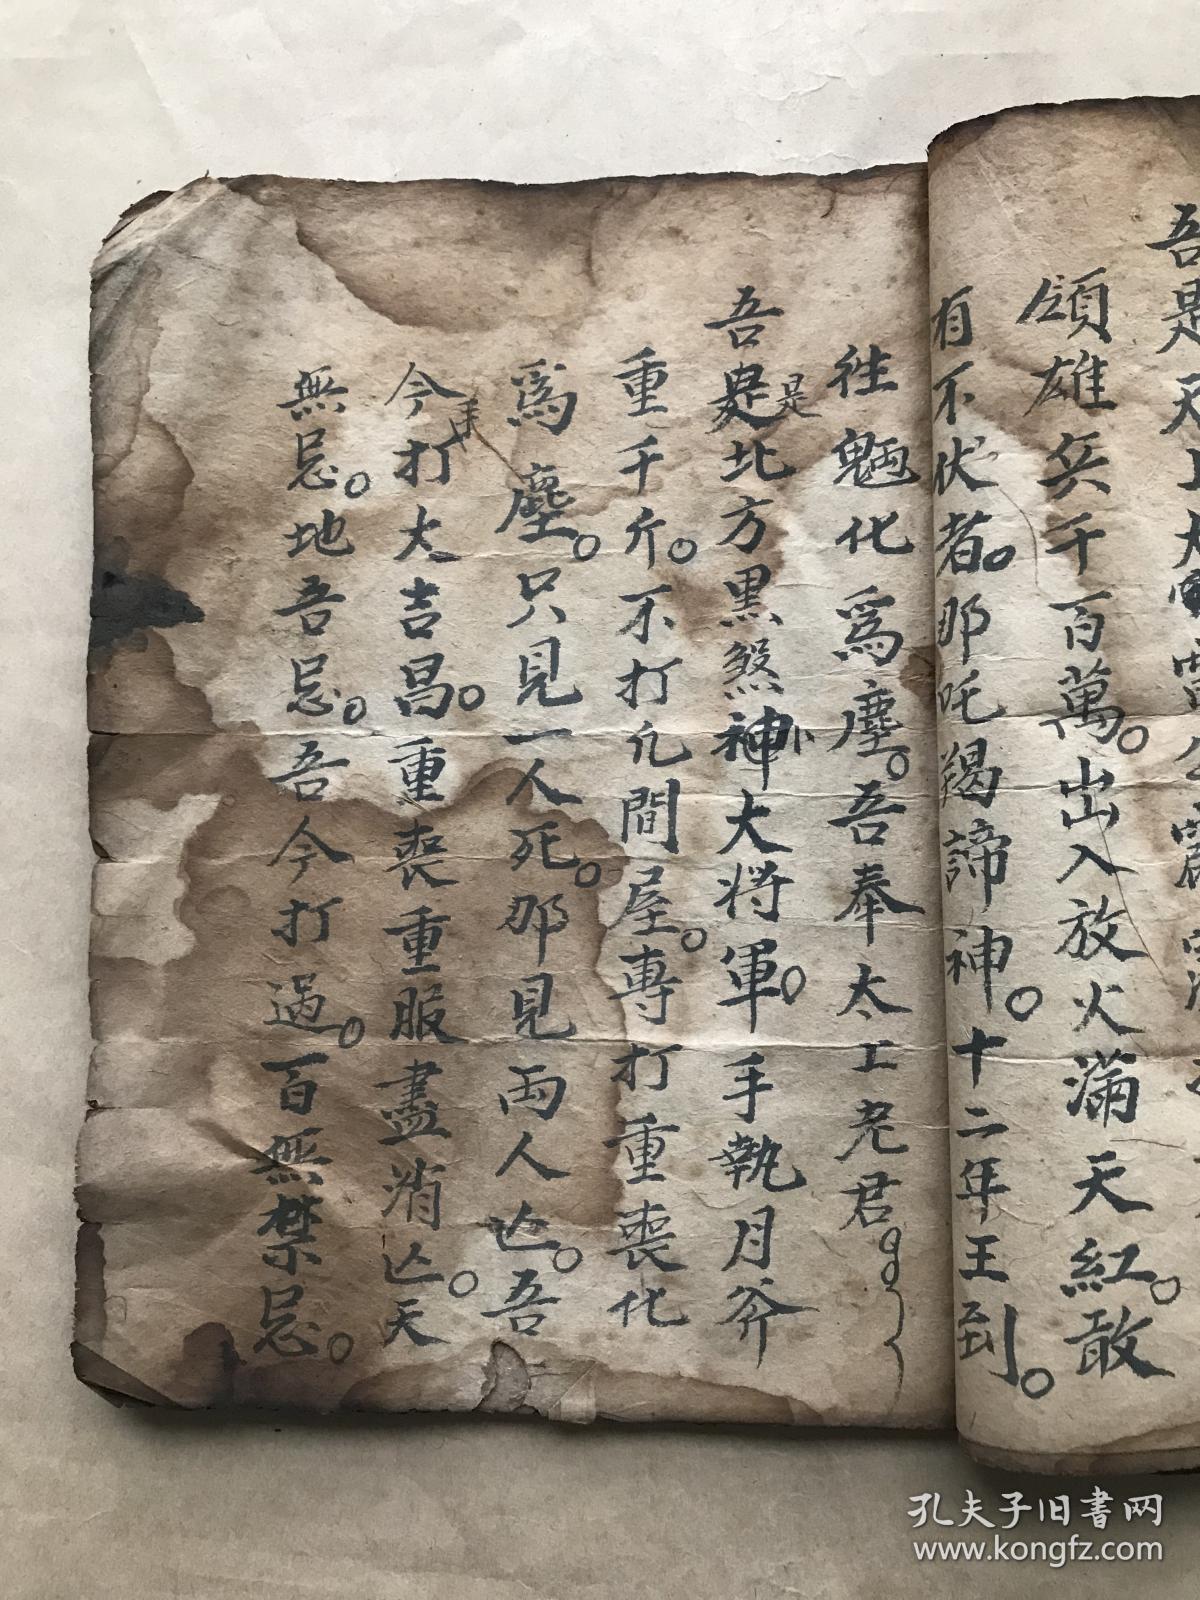 吾是天上大
領雄兵千百萬。出入放火滿天紅。敢
有不伏者。那吒羯諦神。十二年王到。
徃魍化爲塵。吾奉太上老君
吾是北方黑煞神大将軍。手執月斧
重千斤。不打凢間屋。專打重喪化
爲塵。只見一人死。那見両人亾。吾
今打大吉昌。重喪重服盡消亾。天
無忌。地吾忌。吾今打過。百無禁忌。
孔夫子旧书网
www.kongfz.com